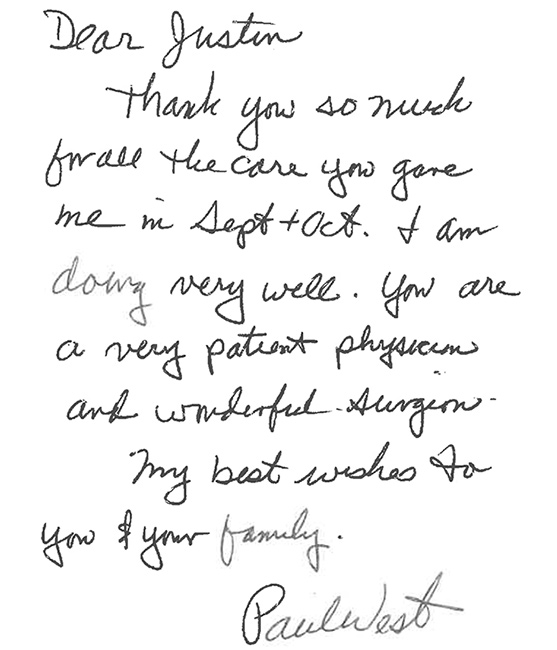 Dear Justin
Thank you so much
for all the care you gave
me in Sept + Oct. I am
doing very well. You are
a very patient physician
and wonderful surgeon.
My best wishes to
you & your family.
Paul West